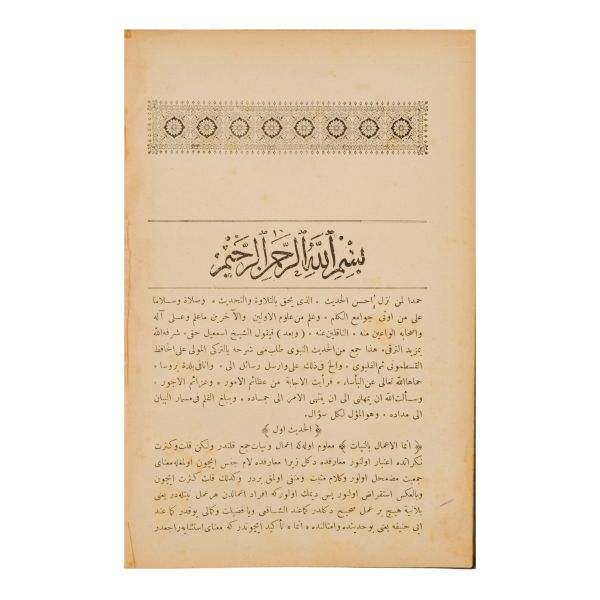 بسم الله الرحمن الرحيم
حمدا لمن نزل احسن الحديث ٭ الذى يحق بالتلاوة والتحديث ٭ وصلاة وسلاما
على من اوتى جوامع الكلم ٭ وعلم من علوم الاولين والآخرين ماعلم وعلى آله
واصحابه الواعين منه ٭ الناقلين عنه ٭ ( وبعد ) فيقول الشيخ اسمعيل حقى ٭ شرفه الله
بمزيد الترقى ٭ هذا جمع من الحديث النبوى طلب منى شرحه بالتركى المولى على الحافظ
القسطمونى ثم الفلبوى ٭ والح فى ذلك على وارسل رسائل الى ٭ وانا فى بلدة بروسا ٭
حماها الله تعالى عن البأساء ٭ فرأيت الاجابة من عظائم الامور ٭ وعزائم الاجور ٭
وسألت الله ان يمهلنى الى ان ينتهى الامر الى جماده ٭ ويبلغ القلم فى مسمار البيان
الى مداده ٭ وهو المؤل لكل سؤال
﴿ الحديث اول ﴾
﴿ انما الاعمال بالنيات ﴾ معلوم اوله كه اعمال ونيات جمع قلتدر ولكن قلت وكثرت
نكرانده اعتبار اولنور معارفده دكل زيرا معارفده لام جنس ايچون اولمغله معناى
جمعيت مضمحل اولور وكلام مثبت ومنفى اولمق بردر وكذلك قلت كثرت ايچون
وبالعكس استقراض اولنور پس ديمك اولور كه افراد اعمالدن هر عمل نيتله در يعنى
بلانية هيچ بر عمل صحيح دكلدر كما عند الشافعى ويا فضيلت وكمالى يوقدر كما عند
ابى حنيفه يعنى بوحديثده وامثالنده ٭ انما ٭ تأكيد ايچوندر كه معناى استثنايه راجعدر